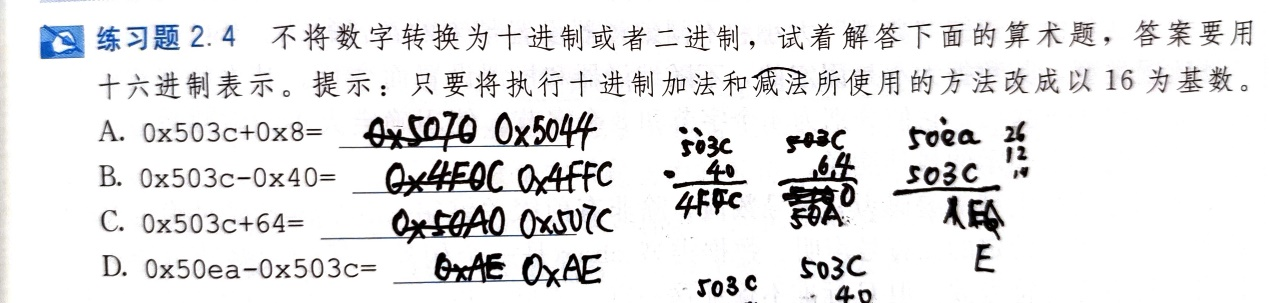 练习题 2.4 不将数字转换为十进制或者二进制，试着解答下面的算术题，答案要用
十六进制表示。提示：只要将执行十进制加法和减法所使用的方法改成以 16 为基数。
A. 0x503c+0x8= 0x5070 0x5044
B. 0x503c-0x40= 0x4F0C 0x4FFC
C. 0x503c+64= 0x50A0 0x507C
D. 0x50ea-0x503c= 0xAE 0xAE
503C
40
4FFC
503C
64
50A0
50ea
503C
E
26
12
503C
503C
40